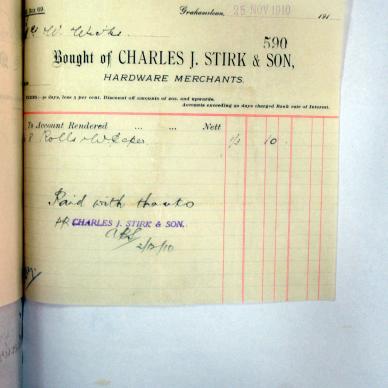 Box 69.
Grahamstown, 25 NOV 1910 191
590
Bought of CHARLES J. STIRK & SON,
HARDWARE MERCHANTS.
30 days, less 5 per cent. Discount off amounts of 20s. and upwards.
Accounts exceeding 90 days charged Bank rate of Interest.
To Account Rendered ... ... Nett
8 Rolls 1/3 10
Paid with thanks
CHARLES J. STIRK & SON.
2/12/10